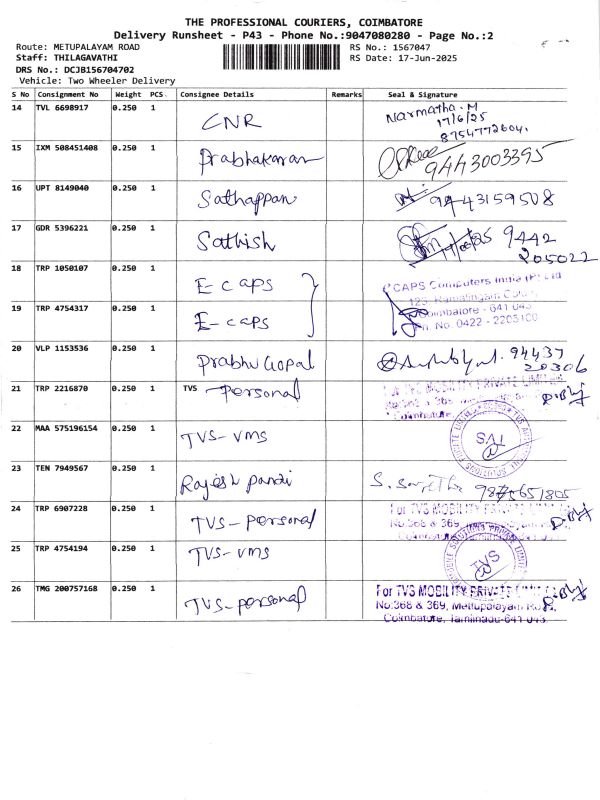 THE PROFESSIONAL COURIERS, COIMBATORE
Delivery Runsheet - P43 - Phone No.:9047080280 - Page No.:2
Route: METUPALAYAM ROAD RS No.: 1567047
Staff: THILAGAVATHI RS Date: 17-Jun-2025
DRS No.: DCJB156704702
Vehicle: Two Wheeler Delivery
S No Consignment No Weight PCS Consignee Details Remarks Seal & Signature
14 TVL 6698917 0.250 1 CNR Narmatha.M
17/6/25
8754772604.
15 IXM 508451408 0.250 1 Prabhakaran 9443003395
16 UPT 8149040 0.250 1 Sathappan 9443159508
17 GDR 5396221 0.250 1 Sathish 9442
205022
18 TRP 1050107 0.250 1 E caps CAPS Computers India (P) Ltd
19 TRP 4754317 0.250 1 E-caps Coimbatore - 641 043
20 VLP 1153536 0.250 1 Prabhu Gopal 94437
20306
21 TRP 2216870 0.250 1 TVS - Personal For TVS MOBILITY PRIVATE LIMITED
22 MAA 575196154 0.250 1 TVS - VMS TVS
23 TEN 7949567 0.250 1 Rajesh Pandi 9875651805
24 TRP 6907228 0.250 1 TVS - Personal For TVS MOBILITY PRIVATE
No.368 & 369
25 TRP 4754194 0.250 1 TVS - VMS TVS
26 TMG 200757168 0.250 1 TVS - personal For TVS MOBILITY PRIVATE
No.368 & 369, Mettupalayam
Coimbatore, Tamilnadu-641 043